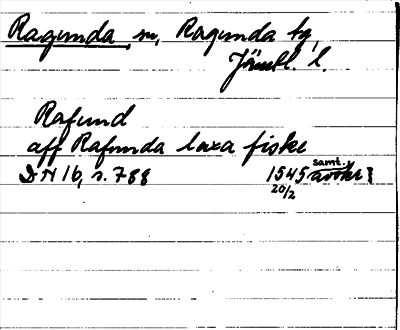 Ragunda sn, Ragunda tg,
Jämtl. l.
Rafund
aff Rafunda laxa fiske
DN 16, s. 788 1545 samt. avskr
20/2